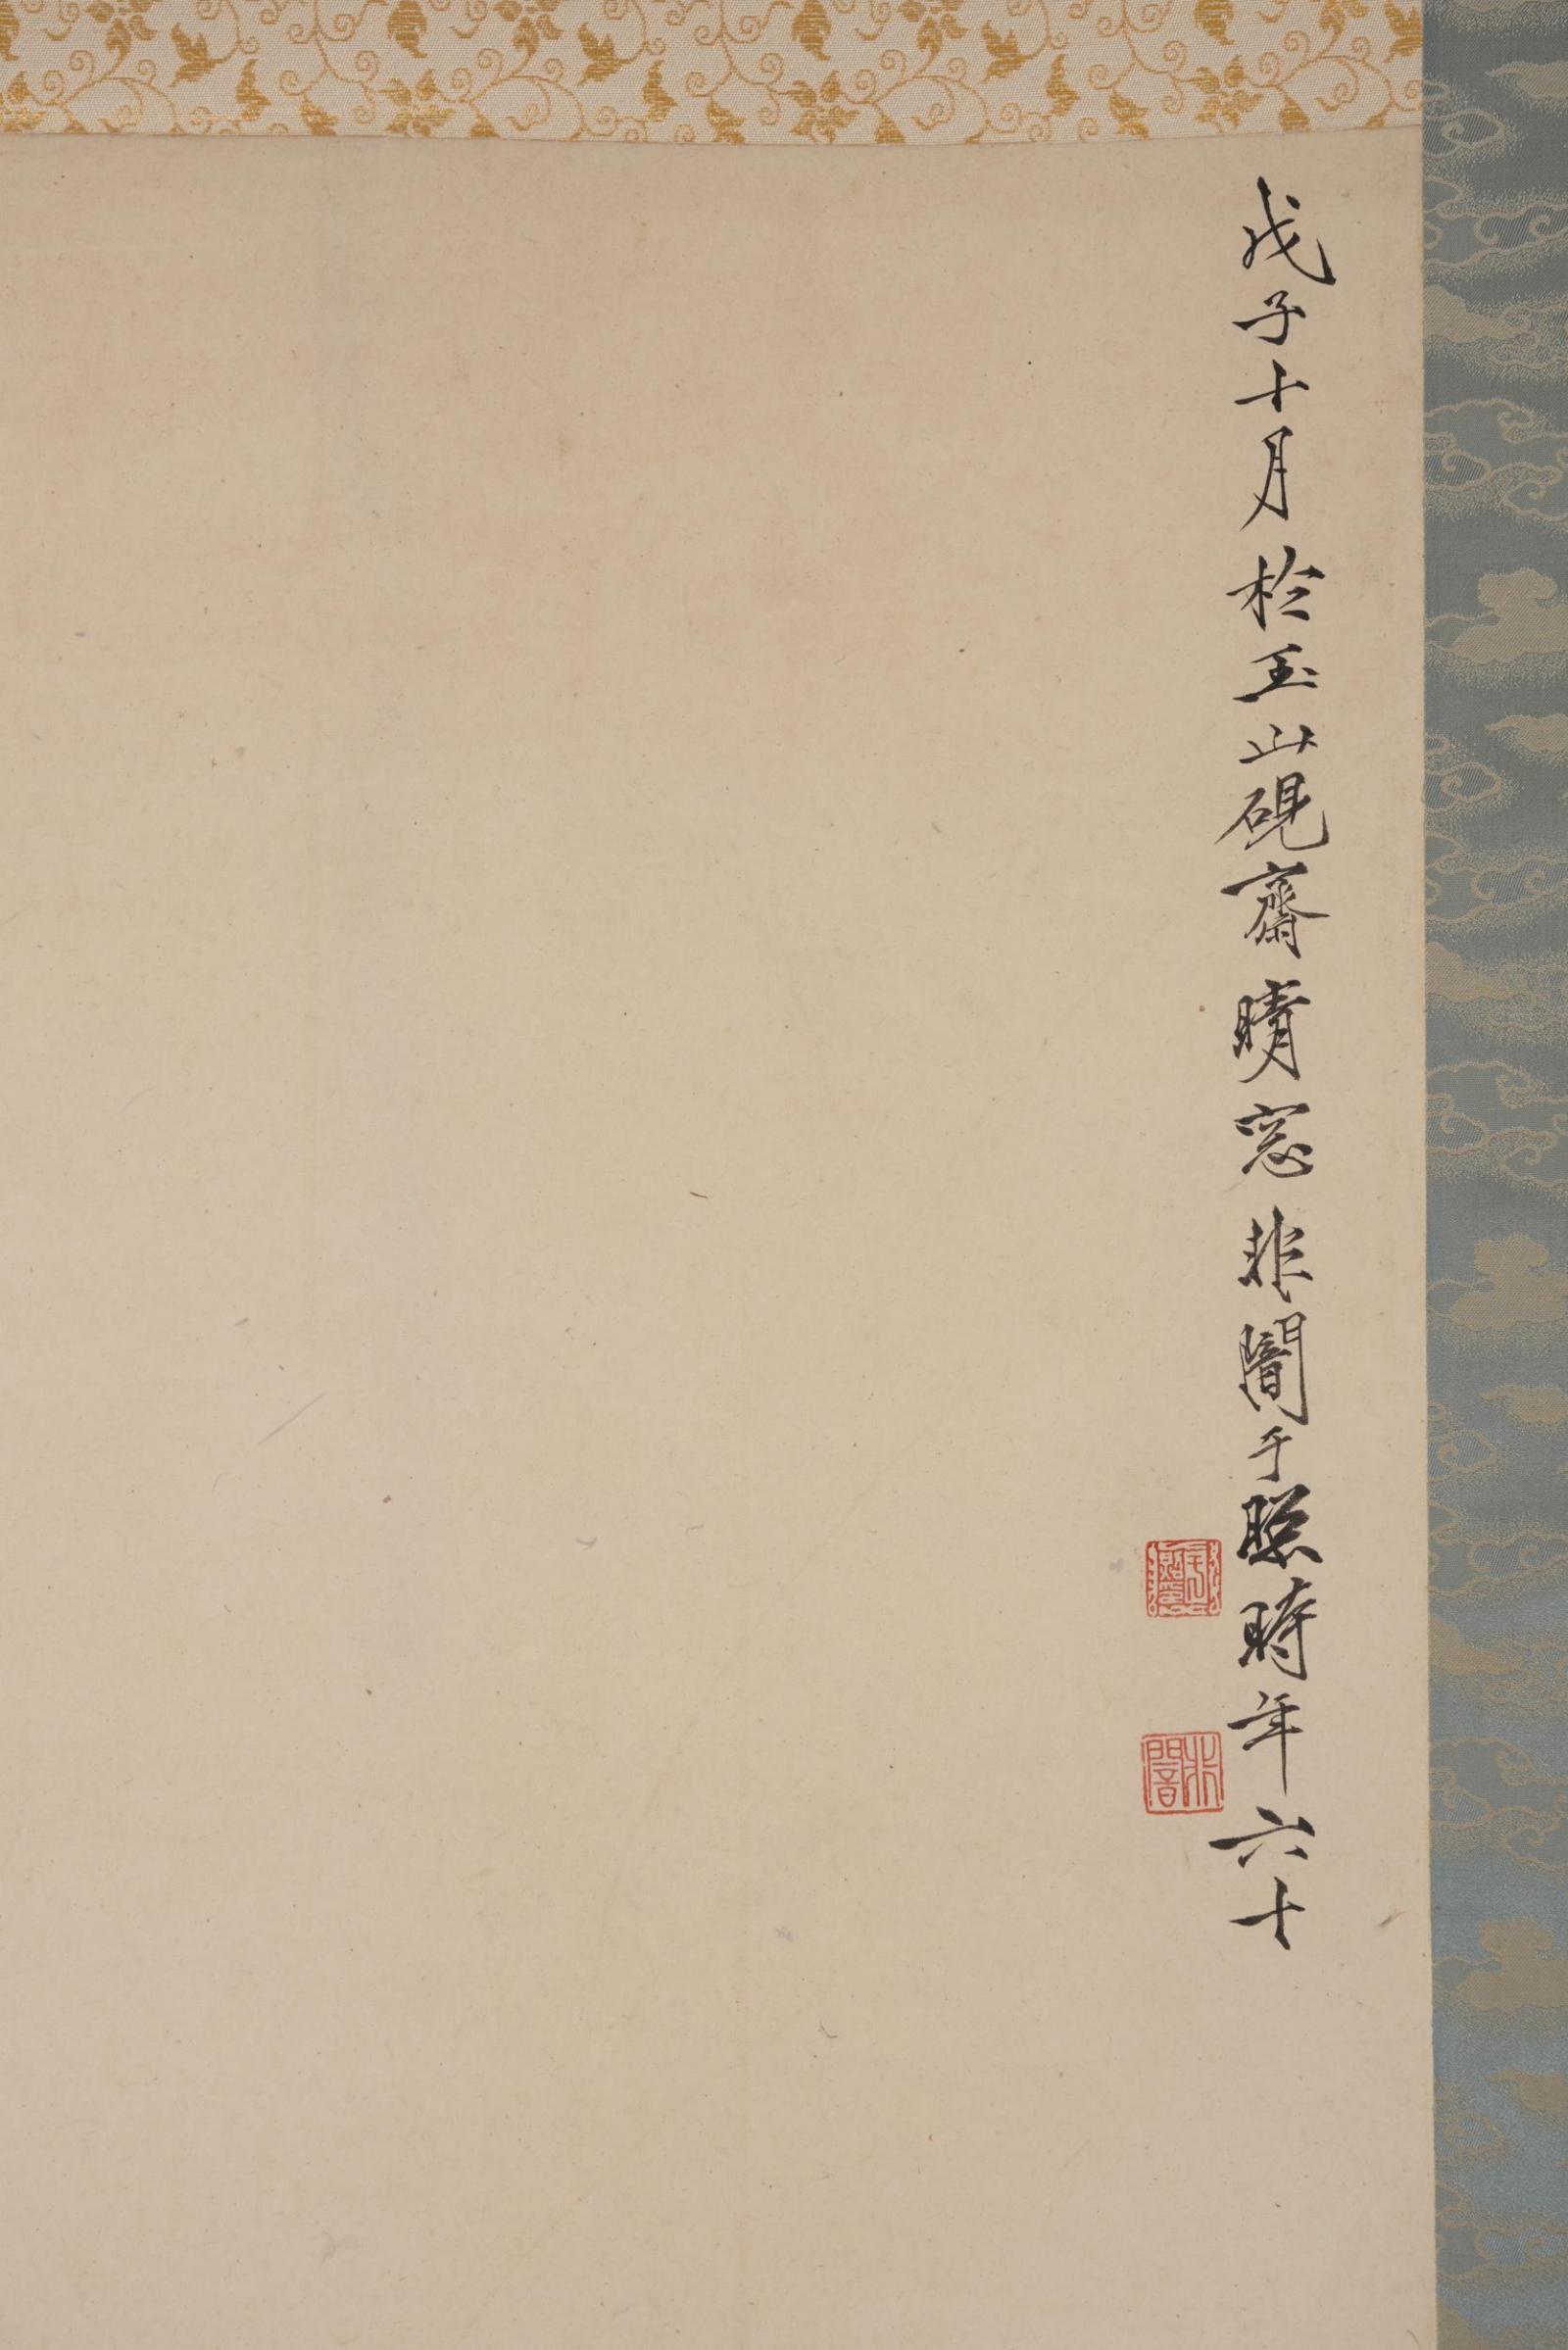 戊子十月於玉山硯齋晴窓非闇于照時年六十
非闇